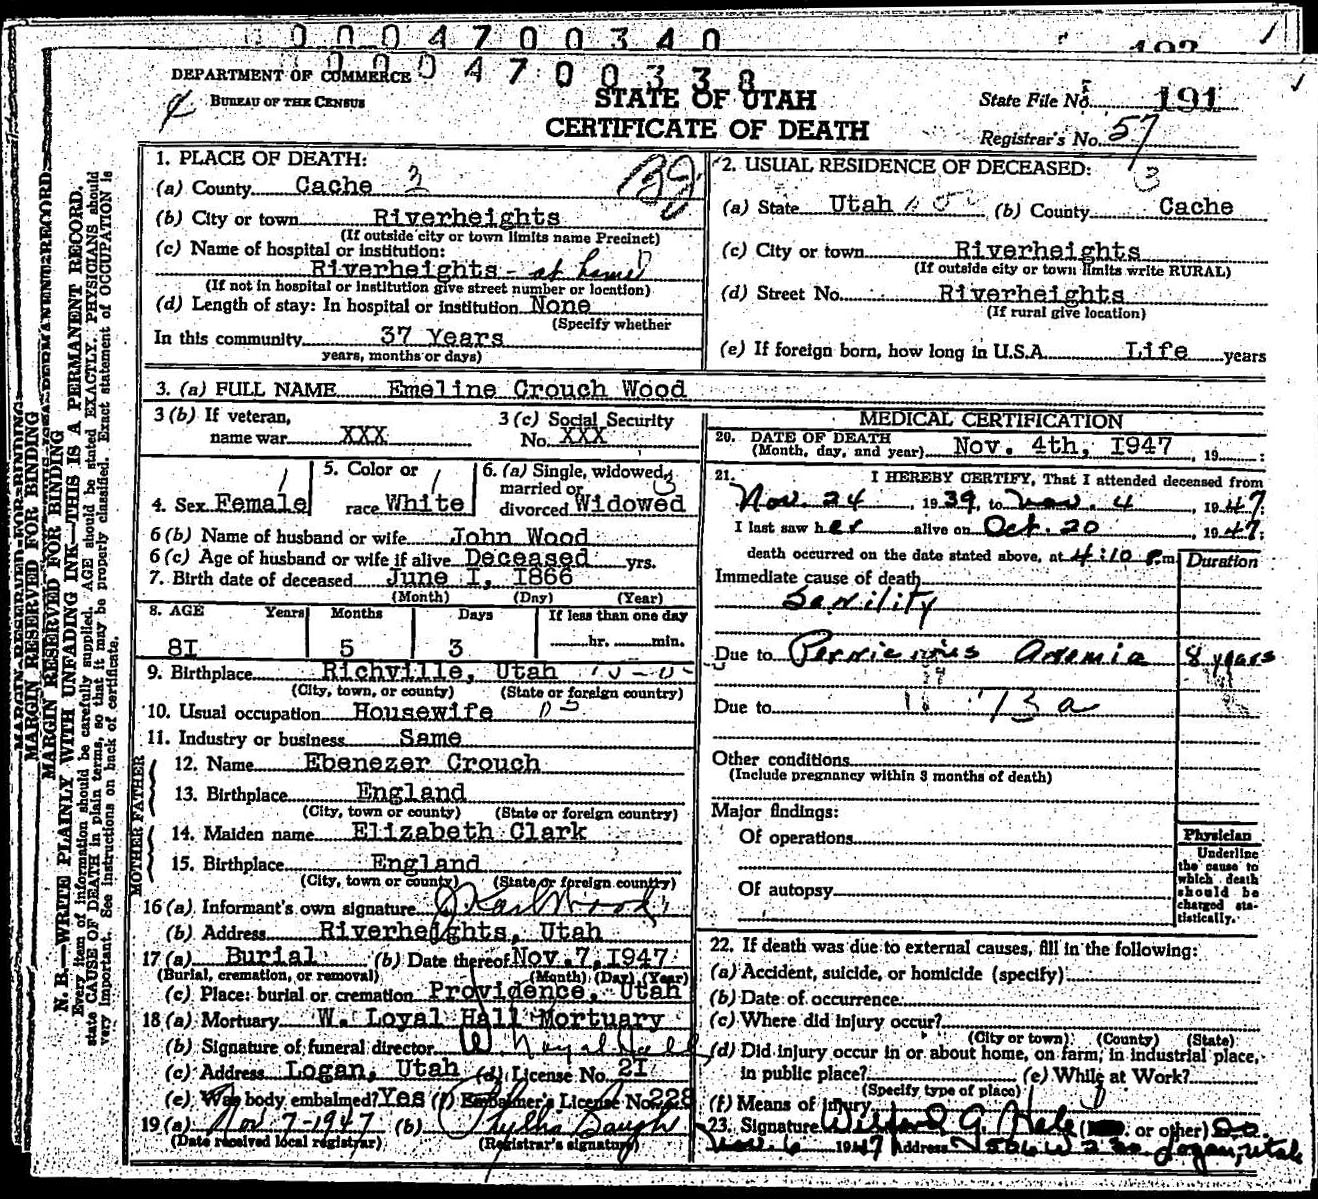 0 0 0 4 7 0 0 3 4 0
192
DEPARTMENT OF COMMERCE
0 0 0 4 7 0 0 3 3 8
BUREAU OF THE CENSUS
STATE OF UTAH
CERTIFICATE OF DEATH
State File No. 191
Registrar's No. 57
MARGIN RESERVED FOR BINDING
MARGIN RESERVED FOR BINDING
N. B.—WRITE PLAINLY WITH UNFADING INK—THIS IS A PERMANENT RECORD.
Every item of information should be carefully supplied. AGE should be stated EXACTLY. PHYSICIANS should
state CAUSE OF DEATH in plain terms, so that it may be properly classified. Exact statement of OCCUPATION is
very important. See instructions on back of certificate.
1. PLACE OF DEATH:
(a) County Cache 2
(b) City or town Riverheights
(If outside city or town limits name Precinct)
(c) Name of hospital or institution:
Riverheights - at home
(If not in hospital or institution give street number or location)
(d) Length of stay: In hospital or institution None
(Specify whether
In this community 37 Years
years, months or days)
2. USUAL RESIDENCE OF DECEASED:
3
(a) State Utah (b) County Cache
(c) City or town Riverheights
(If outside city or town limits write RURAL)
(d) Street No. Riverheights
(If rural give location)
(e) If foreign born, how long in U.S.A. Life years
3. (a) FULL NAME Emeline Crouch Wood
3 (b) If veteran,
name war XXX
3 (c) Social Security
No. XXX
4. Sex Female
5. Color or
race White
6. (a) Single, widowed,
married or
divorced Widowed
6 (b) Name of husband or wife John Wood
6 (c) Age of husband or wife if alive Deceased yrs.
7. Birth date of deceased June I, I866
(Month) (Day) (Year)
8. AGE Years Months Days If less than one day
8I 5 3 hr. min.
9. Birthplace Richville, Utah
(City, town, or county) (State or foreign country)
10. Usual occupation Housewife
11. Industry or business Same
FATHER
12. Name Ebenezer Crouch
13. Birthplace England
(City, town or county) (State or foreign country)
MOTHER
14. Maiden name Elizabeth Clark
15. Birthplace England
(City, town or county) (State or foreign country)
16 (a) Informant's own signature J Karl Wood
(b) Address Riverheights, Utah
17 (a) Burial (b) Date thereof Nov. 7, I947
(Burial, cremation, or removal) (Month) (Day) (Year)
(c) Place: burial or cremation Providence, Utah
18 (a) Mortuary W. Loyal Hall Mortuary
(b) Signature of funeral director W. Loyal Hall
(c) Address Logan, Utah (d) License No. 2I
(e) Was body embalmed? Yes (f) Embalmer's License No. 228
19 (a) Nov 7-1947 (b) Phyllis Baugh
(Date received local registrar) (Registrar's signature)
MEDICAL CERTIFICATION
20. DATE OF DEATH
(Month, day, and year) Nov. 4th, I947, 19 :
21. I HEREBY CERTIFY, That I attended deceased from
Nov. 24, 1939, to Nov. 4, 1947;
I last saw her alive on Oct. 20, 1947;
death occurred on the date stated above, at 4:10 P.m.
Duration
Immediate cause of death
Senility
Due to Pernicious Anemia 8 years
Due to
73a
Other conditions
(Include pregnancy within 3 months of death)
Major findings:
Of operations
Of autopsy
Physician
Underline
the cause to
which death
should be
charged sta-
tistically.
22. If death was due to external causes, fill in the following:
(a) Accident, suicide, or homicide (specify)
(b) Date of occurrence
(c) Where did injury occur?
(City or town) (County) (State)
(d) Did injury occur in or about home, on farm, in industrial place,
in public place? (e) While at Work?
(Specify type of place)
(f) Means of injury
23. Signature Wilford G. Hale ( , or other) D.O.
Nov. 6 1947 Address Logan, Utah